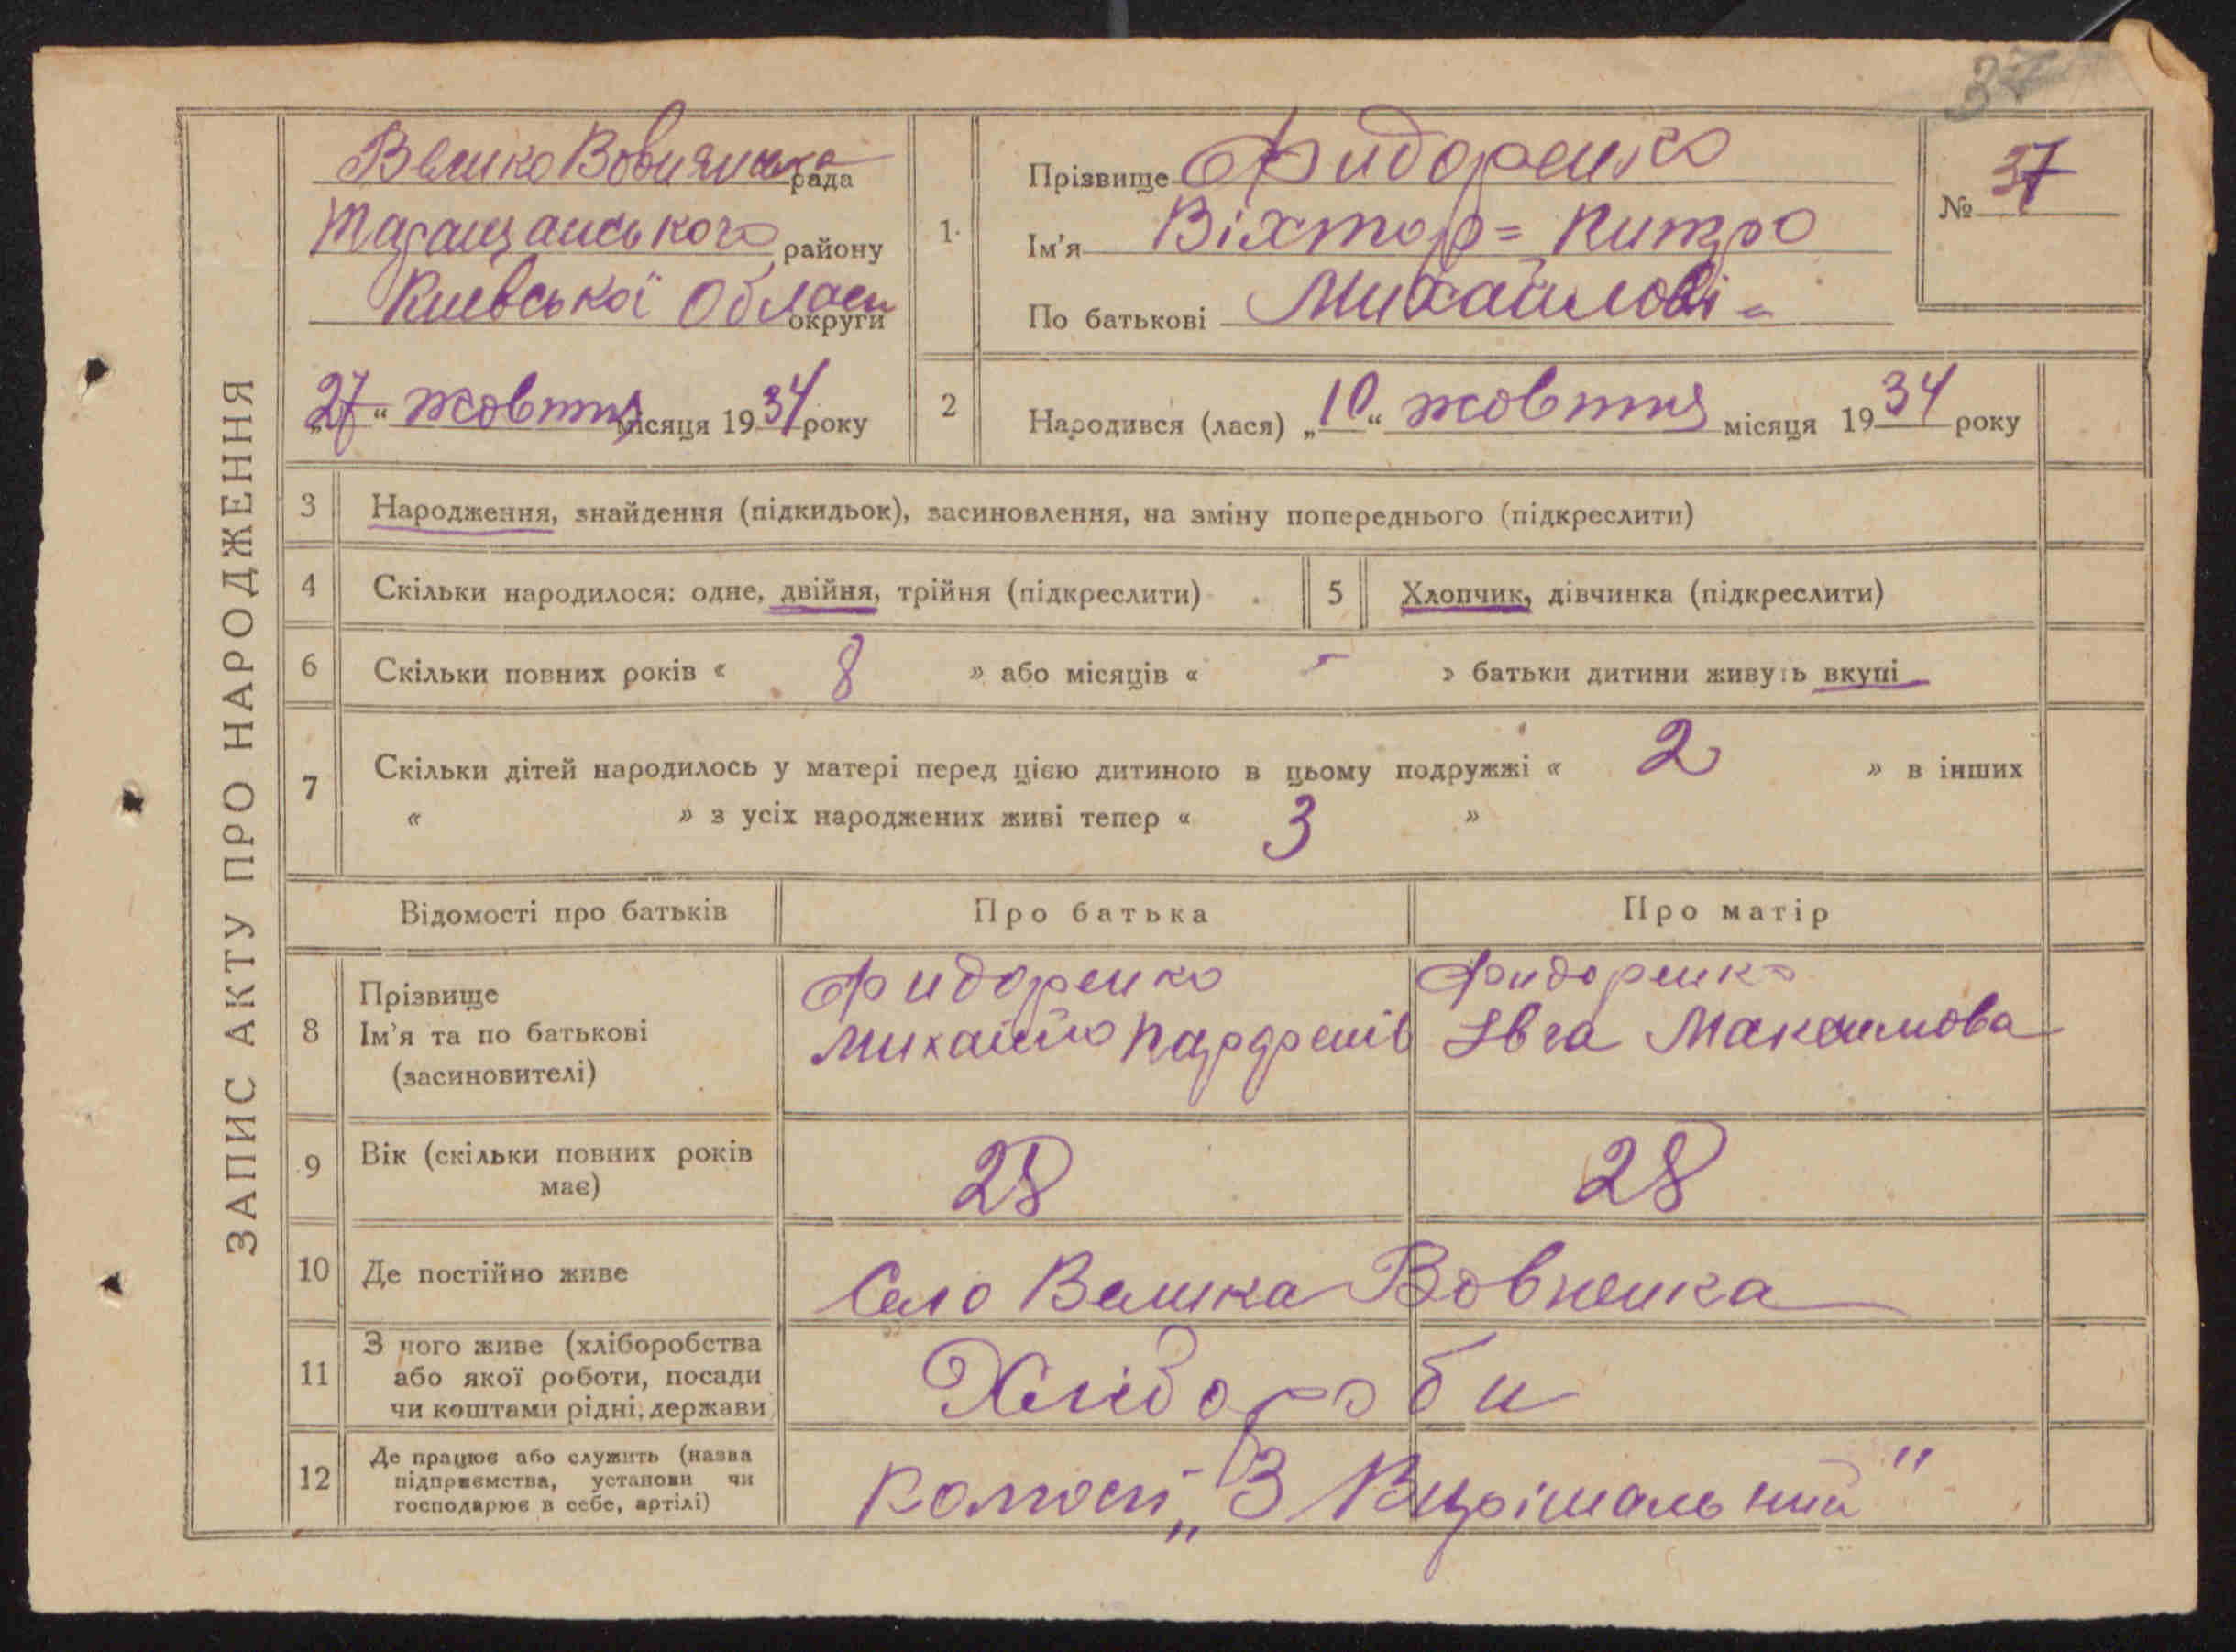 37
ЗАПИС АКТУ ПРО НАРОДЖЕННЯ
Велико Вовнянська рада
Таращанського району
Киевської Області округи
„27“ жовтня місяця 1934 року
1. Прізвище Фидоренко
Ім'я Віхтор = Митро
По батькові Михайлові =
№ 37
2 Народився (лася) „10“ жовтня місяця 1934 року
3 Народження, знайдення (підкидьок), засиновлення, на зміну попереднього (підкреслити)
4 Скільки народилося: одне, двійня, трійня (підкреслити)
5 Хлопчик, дівчинка (підкреслити)
6 Скільки повних років « 8 » або місяців « - » батьки дитини живуть вкупі
7 Скільки дітей народилось у матері перед цією дитиною в цьому подружжі « 2 » в інших
« » з усіх народжених живі тепер « 3 »
Відомості про батьків Про батька Про матір
8 Прізвище
Ім'я та по батькові
(засиновителі)
Фидоренко
Михайло
Фидоренко
Івга Максимова
9 Вік (скільки повних років
має)
28 28
10 Де постійно живе Село Велика Вовнянка
11 З чого живе (хліборобства
або якої роботи, посади
чи коштами рідні, держави
Хлібороби
12 Де працює або служить (назва
підприємства, установи чи
господарює в себе, артілі)
Колгосп „3 Вирішальний"